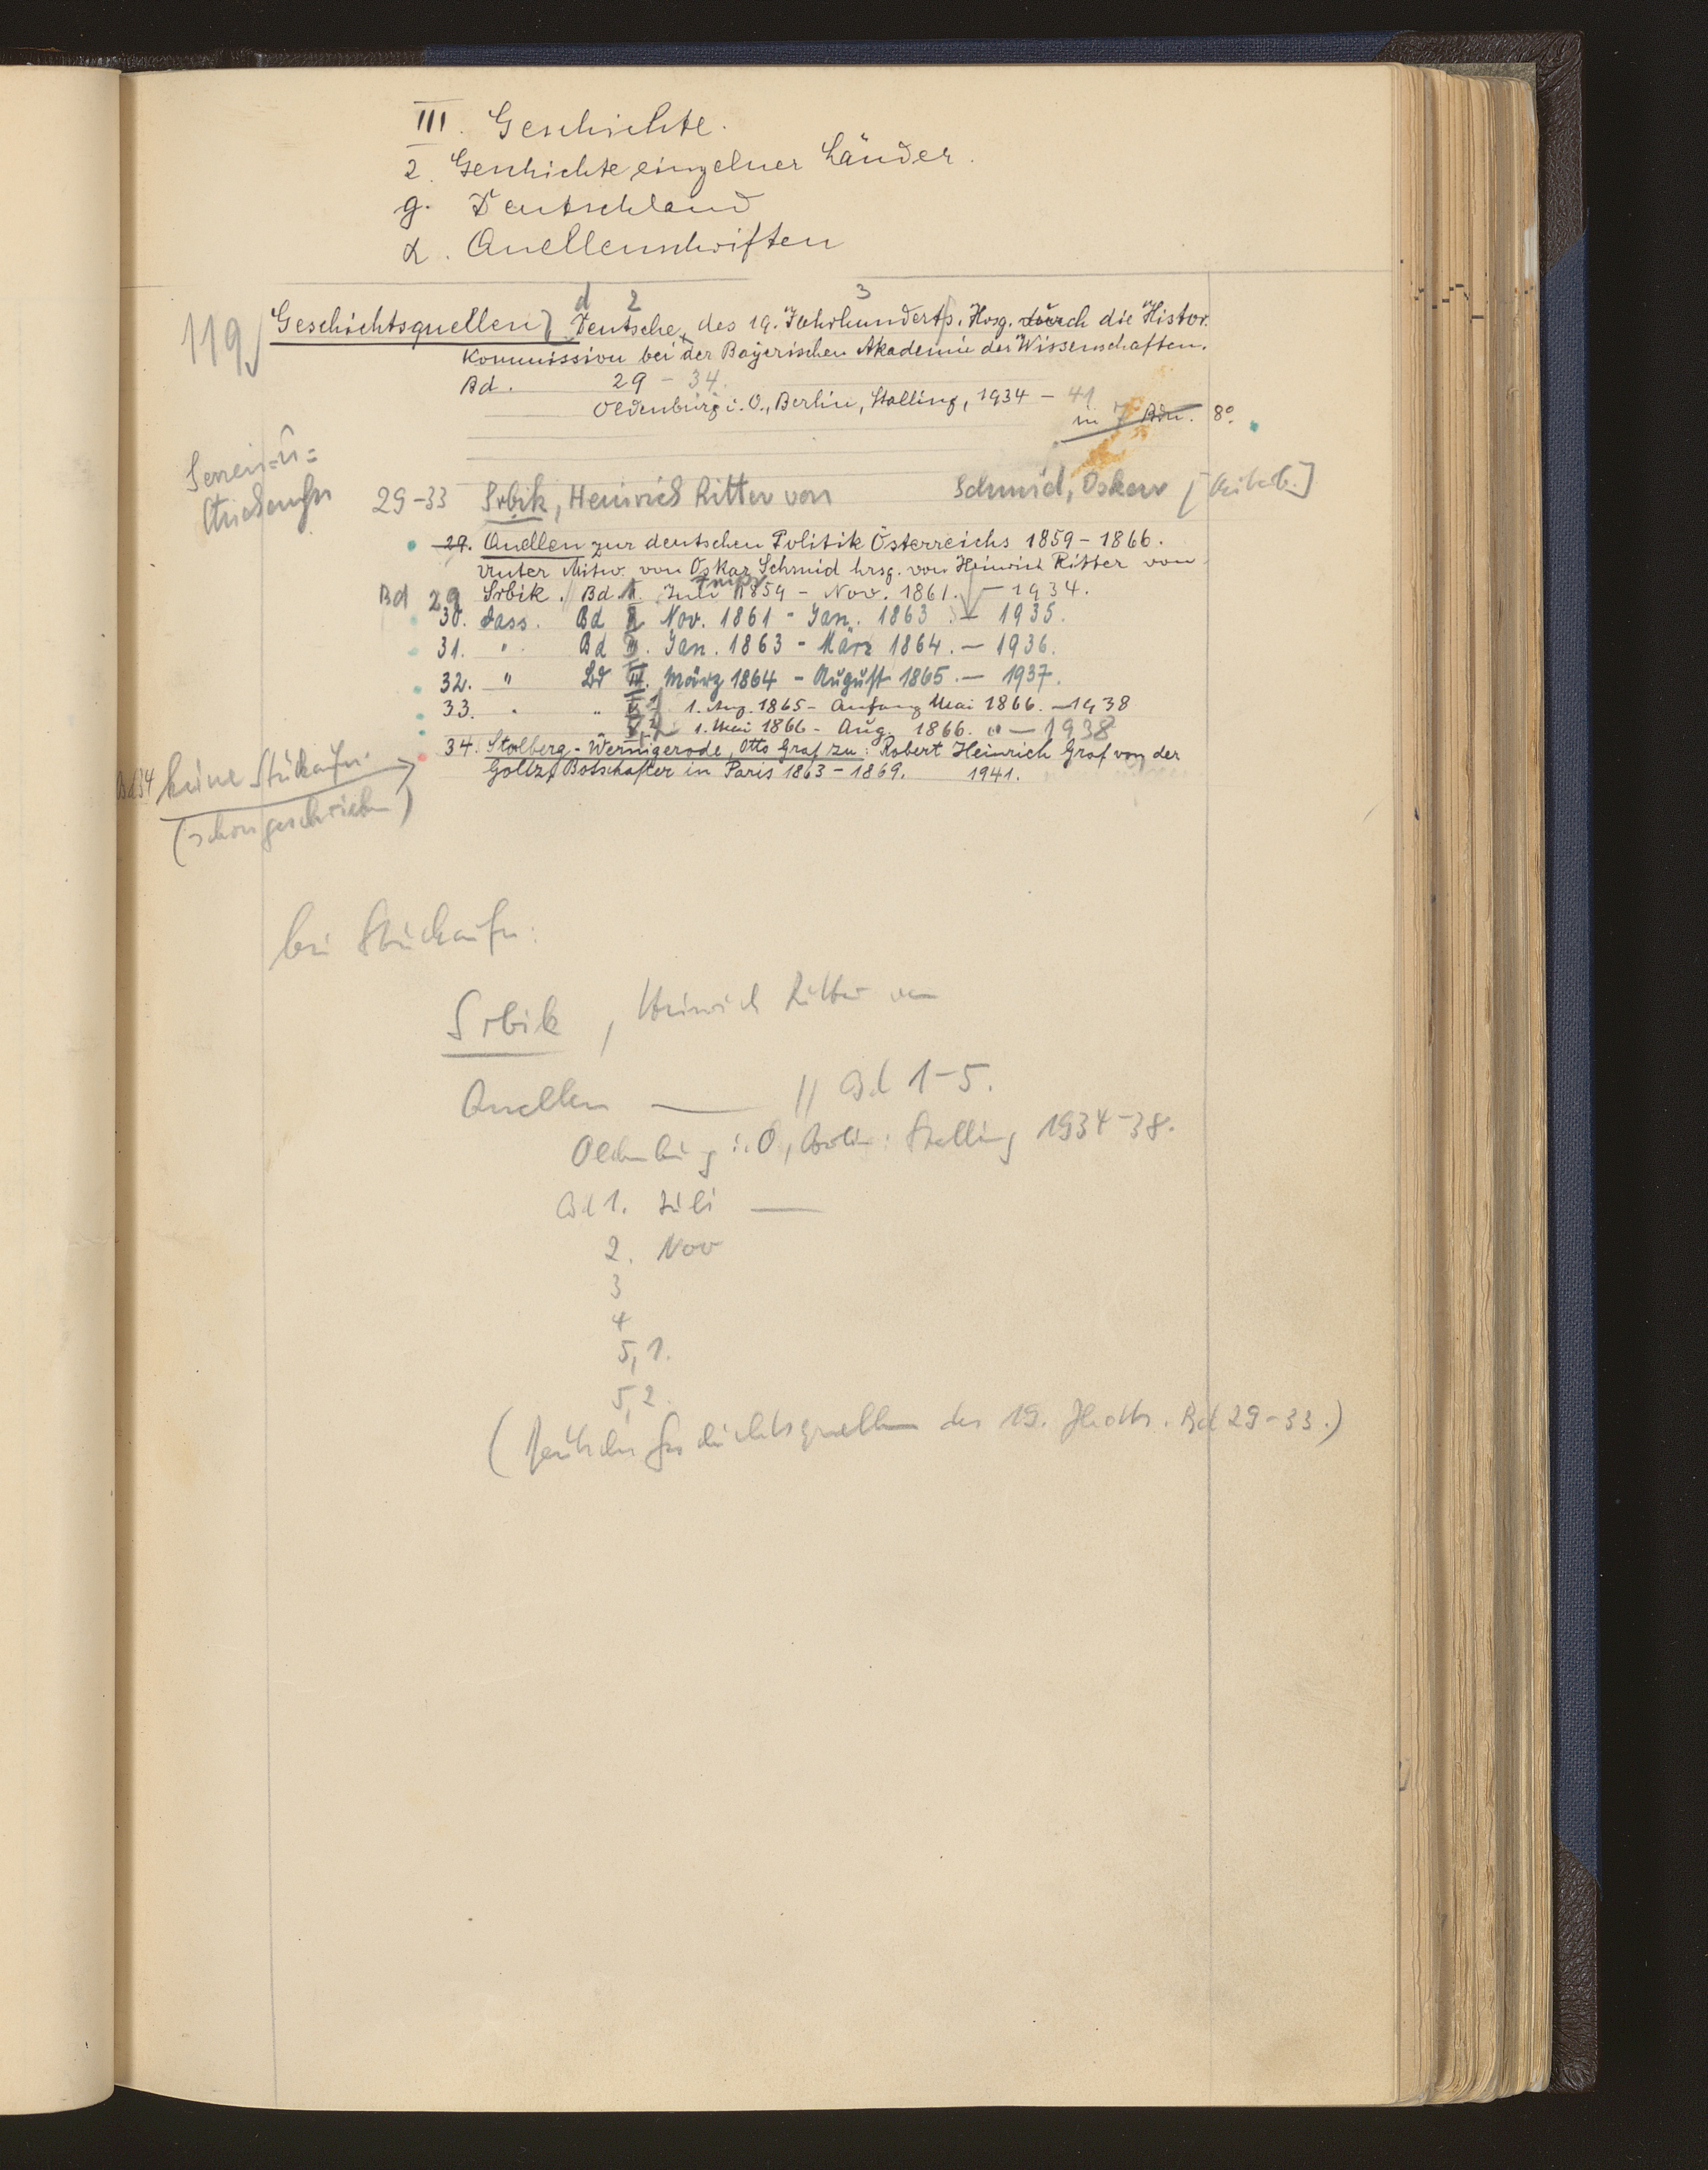 III. Geschichte.
2. Geschichte einzelner Länder.
g. Deutschland
α. Quellenschriften
d 2 3
119 Geschichtsquellen, Deutsche, des 19. Jahrhunderts. Hrsg. durch die Histor.
Kommission bei der Bayerischen Akademie der Wissenschaften.
Bd. 29 - 34.
Oldenburg i. O., Berlin, Stalling, 1934 - 41
in 7 Bdn. 8°.
Serien- u =
Stückaufn
29-33 Srbik, Heinrich Ritter von Schmid, Oskar [Mitarb.]
29. Quellen zur deutschen Politik Österreichs 1859 - 1866.
Unter Mitw. von Oskar Schmid hrsg. von Heinrich Ritter von
Bd 29 Srbik. // Bd 1. Juli 1859 - Nov. 1861. - 1934.
30. dass. Bd 2 Nov. 1861 - Jan. 1863 - 1935.
31. " Bd . Jan. 1863 - März 1864. - 1936.
32. " Bd . März 1864 - August 1865. - 1937.
33. " " 5,1 1. Aug. 1865 - Anfang Mai 1866. - 1938
5,2 1. Mai 1866 - Aug. 1866. " - 1938
34. Stolberg-Wernigerode, Otto Graf zu: Robert Heinrich Graf von der
Goltz, Botschafter in Paris 1863 - 1869. 1941.
Bd 34 keine Stückaufn.
(schon geschrieben)
bei Stückaufn:
Srbik, Heinrich Ritter von
Quellen — // Bd 1-5.
Oldenburg i. O, Berlin: Stalling 1934-38.
Bd 1. Juli —
2. Nov
3
4
5, 1.
5, 2.
(Deutsche Geschichtsquellen des 19. Jhdts. Bd 29-33.)